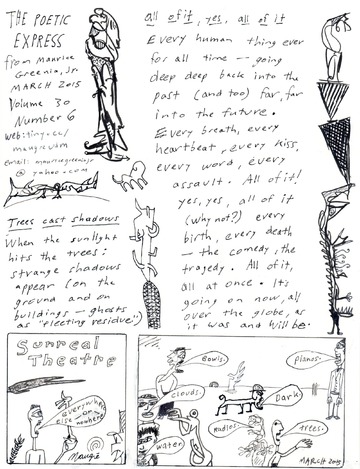 THE POETIC
EXPRESS
from Maurice
Greenia, Jr.
MARCH 2015
Volume 30
Number 6
web: tiny.cc/
email: mauricegreeniajr
@ yahoo.com
Trees cast shadows
When the sunlight
hits the trees:
strange shadows
appear (on the
ground and on
buildings — ghosts
as "fleeting residue.")
all of it, yes, all of it
Every human thing ever
for all time — going
deep deep back into the
past (and too) far, far
into the future.
Every breath, every
heartbeat, every kiss,
every word, every
assault. All of it!
yes, yes, all of it
(why not?) every
birth, every death
— the comedy, the
tragedy. All of it,
all at once. It's
going on now, all
over the globe, as
it was and will be.
Surreal
Theatre
everywhere
or
else
nowhere
Maugré
Bowls.
Pianos.
Clouds.
Dark.
water
Radios
trees.
MARCH 2015